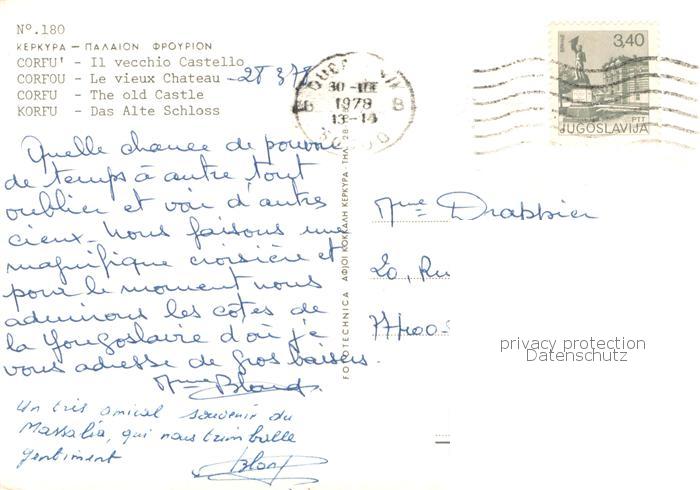 Nº.180
ΚΕΡΚΥΡΑ – ΠΑΛΑΙΟΝ ΦΡΟΥΡΙΟΝ
CORFU' - Il vecchio Castello
CORFOU - Le vieux Chateau
CORFU - The old Castle
KORFU - Das Alte Schloss
28 3 78
30 -III
1978
13-14
B B
3,40
PTT
JUGOSLAVIJA
Quelle chance de pouvoir
de temps à autre tout
oublier et voir d'autres
cieux. Nous faisons une
magnifique croisière et
pour le moment nous
admirons les côtes de
la Yougoslavie d'où je
vous adresse de gros baisers.
Mme Bland
Un très amical souvenir du
Massalia, qui nous trimballe
gentiment
Bland
FOTOTECHNICA ΑΦΙΟΙ ΚΟΚΚΑΛΗ ΚΕΡΚΥΡΑ - ΤΗΛ. 28
Mme Drappier
20, Ru
77400
privacy protection
Datenschutz